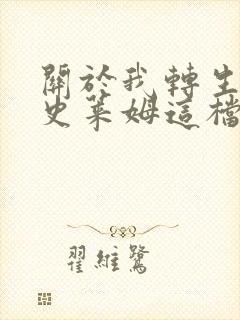 關於我轉生
史萊姆這檔
翟維鷺